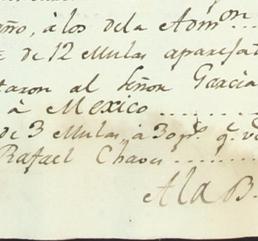 año, á los de la Admon...
de 12 Mulas aparejad
taron al Señor Garcia
á Mexico ........
de 3 Mulas, á 30 ps. q. v
Rafael Chaves ........
A la B.